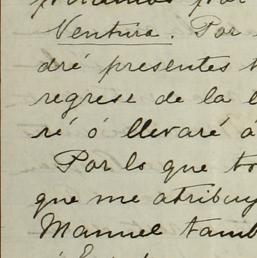 Ventura. Por
dré presentes
regrese de la
ré ó llevaré á
Por lo que
que me atribuy
Manuel tamb